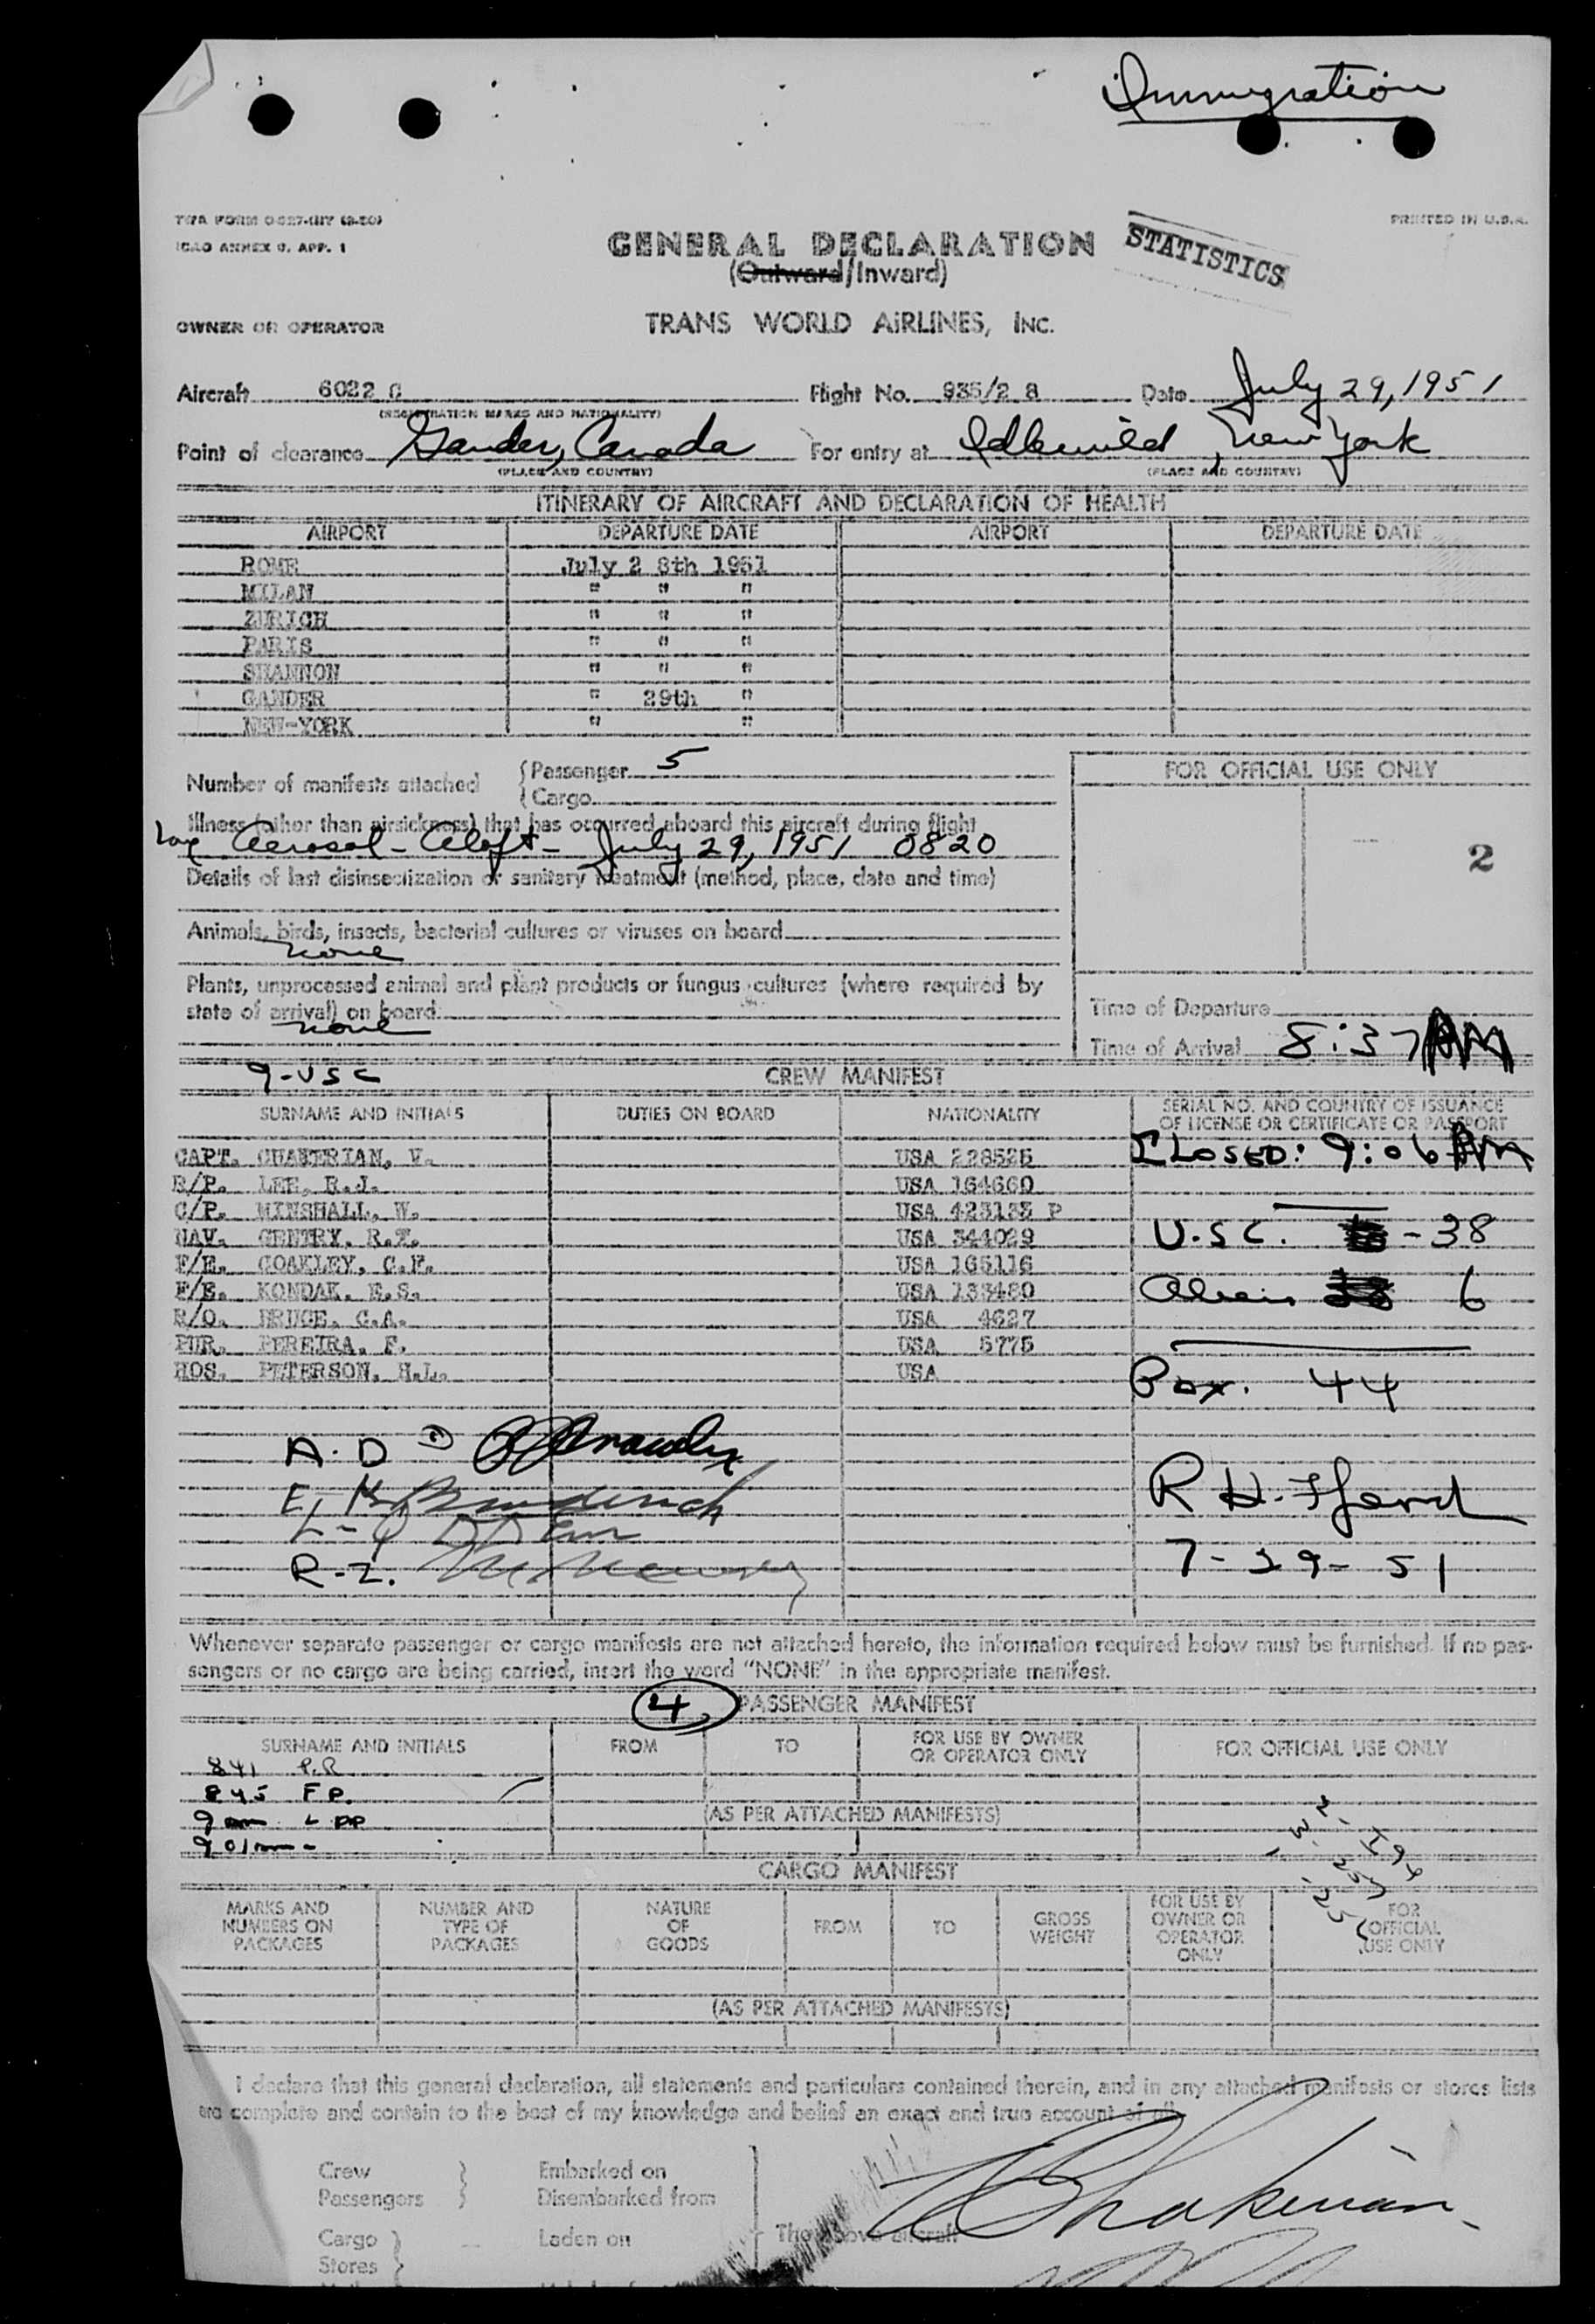 Immigration
ICAO ANNEX 9, APP. 1
PRINTED IN U.S.A.
GENERAL DECLARATION
(Outward/Inward)
STATISTICS
OWNER OR OPERATOR
TRANS WORLD AIRLINES, INC.
Aircraft 6022 C Flight No. 935/28 Date July 29, 1951
(REGISTRATION MARKS AND NATIONALITY)
Point of clearance Gander, Canada For entry at Idlewild, New York
(PLACE AND COUNTRY) (PLACE AND COUNTRY)
ITINERARY OF AIRCRAFT AND DECLARATION OF HEALTH
AIRPORT DEPARTURE DATE AIRPORT DEPARTURE DATE
ROME July 2 8th 1951
MILAN " " "
ZURICH " " "
PARIS " " "
SHANNON " " "
GANDER " 29th "
NEW-YORK " "
Number of manifests attached { Passenger 5
{ Cargo
FOR OFFICIAL USE ONLY
2
Illness (other than airsickness) that has occurred aboard this aircraft during flight
Aerosol - Aloft - July 29, 1951 0820
Details of last disinsectization or sanitary treatment (method, place, date and time)
Animals, birds, insects, bacterial cultures or viruses on board
none
Plants, unprocessed animal and plant products or fungus cultures (where required by
state of arrival) on board:
none
Time of Departure
Time of Arrival 8:37 AM
9-USC
CREW MANIFEST
SURNAME AND INITIALS DUTIES ON BOARD NATIONALITY SERIAL NO. AND COUNTRY OF ISSUANCE
OF LICENSE OR CERTIFICATE OR PASSPORT
CLOSED: 9:06 AM
CAPT. V. USA
LEE, R.J. USA 164660
C/P. MINSHALL, W. USA 423135 P
NAV. GENTRY, R.T. USA 344029
F/E. COAKLEY, C.F. USA 165116
F/E. KONDAK, E.S. USA 133480
R/O. BRUCE, C.A. USA 4627
PUR. PEREIRA, F. USA 5775
HOS. PETERSON, H.L. USA
U.S.C. - 38
Alien 6
Pax. 44
A.D
R.I.
7-29-51
Whenever separate passenger or cargo manifests are not attached hereto, the information required below must be furnished. If no pas-
sengers or no cargo are being carried, insert the word "NONE" in the appropriate manifest.
4 PASSENGER MANIFEST
SURNAME AND INITIALS FROM TO FOR USE BY OWNER
OR OPERATOR ONLY FOR OFFICIAL USE ONLY
841 P.R
845 F P.
(AS PER ATTACHED MANIFESTS)
CARGO MANIFEST
MARKS AND
NUMBERS ON
PACKAGES
NUMBER AND
TYPE OF
PACKAGES
NATURE
OF
GOODS
FROM
TO
GROSS
WEIGHT
FOR USE BY
OWNER OR
OPERATOR
ONLY
FOR
OFFICIAL
USE ONLY
(AS PER ATTACHED MANIFESTS)
I declare that this general declaration, all statements and particulars contained therein, and in any attached manifests or stores lists
are complete and contain to the best of my knowledge and belief an exact and true account of all
Crew } Embarked on
Passengers } Disembarked from
Cargo } Laden on
Stores }
The above aircraft